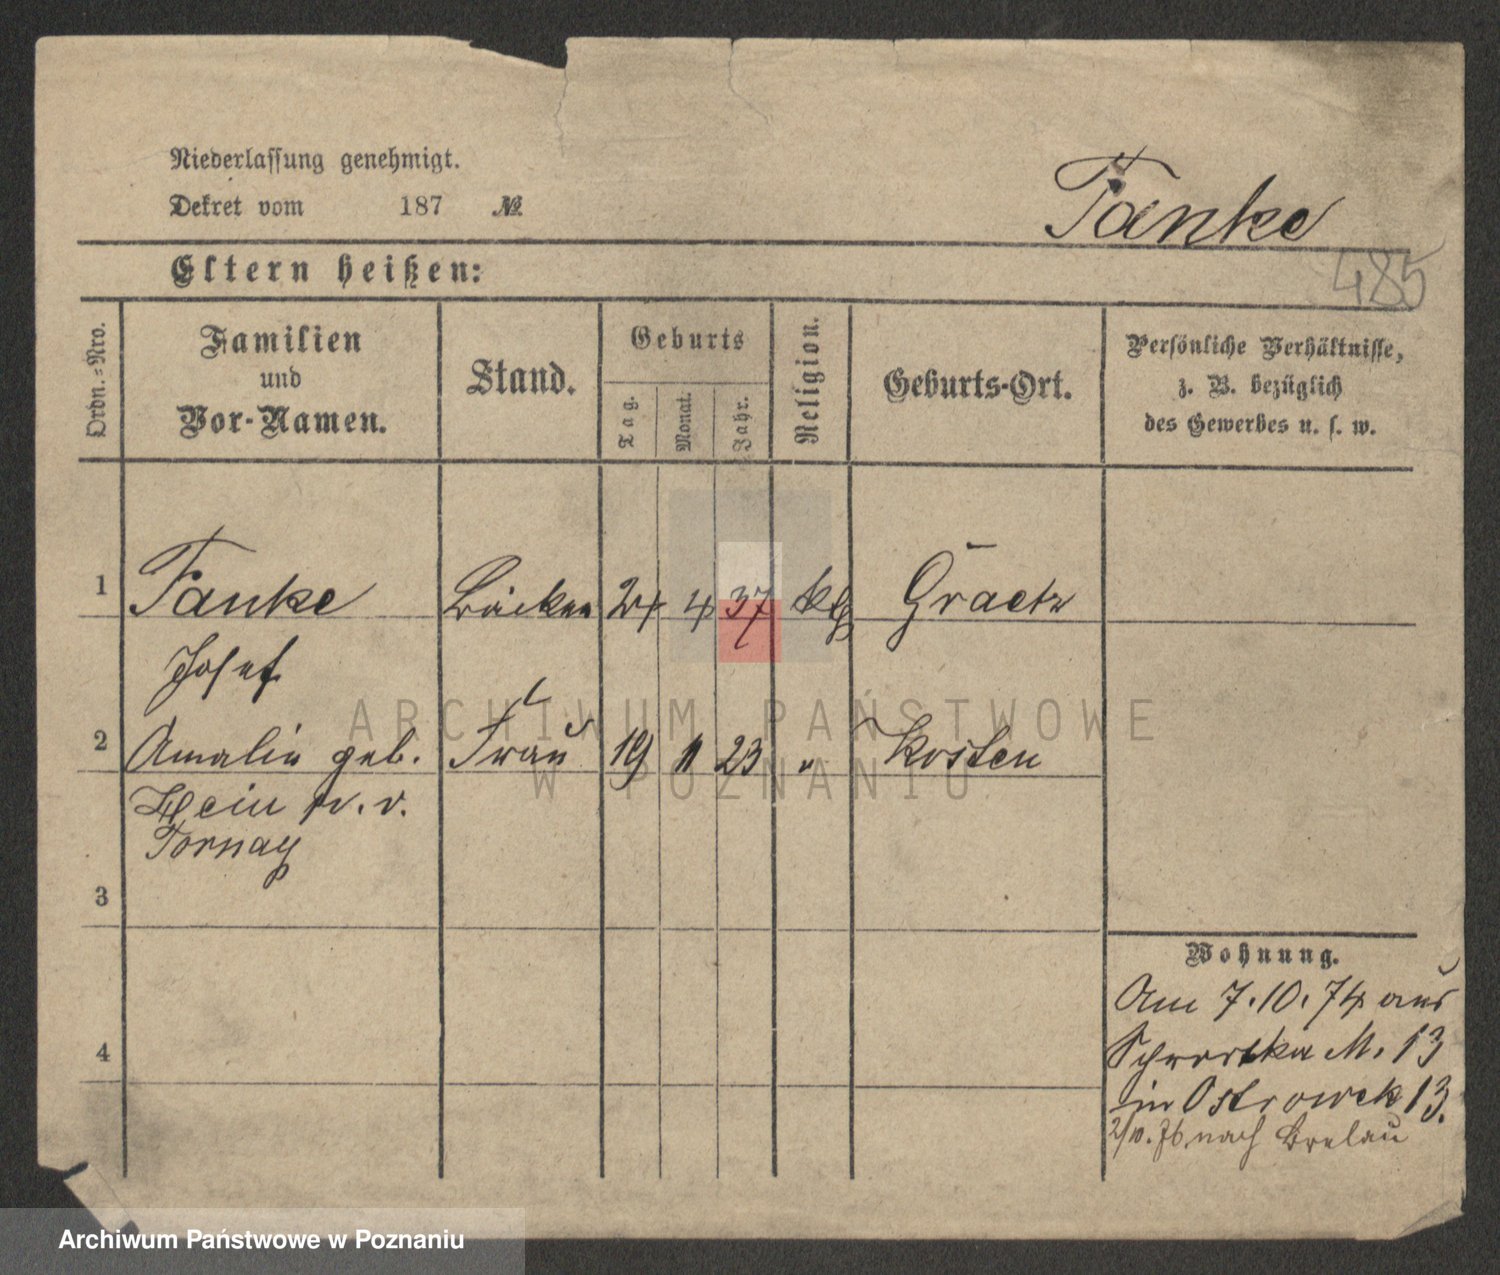 Niederlassung genehmigt.
Dekret vom 187 №
Fanke
485
Eltern heißen:
Ordn.=Nro.
Familien
und
Vor-Namen.
Stand.
Geburts
Tag.
Monat.
Jahr.
Religion.
Geburts-Ort.
Persönliche Verhältnisse,
z. B. bezüglich
des Gewerbes u. s. w.
1 Fanke Bäcker 24 4 37 kth Graetz
Josef
2 Amalie geb. Frau 19 11 23 " Kosten
Hein w. v.
Tornay
3
4
Wohnung.
Am 7.10.74 aus
Schrodka M. 13
in Ostrowek 13.
2/10.76 nach Breslau
ARCHIWUM PAŃSTWOWE
W POZNANIU
Archiwum Państwowe w Poznaniu